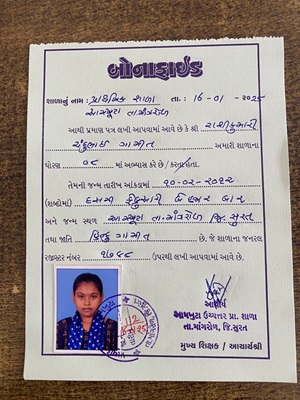 બોનાફાઇડ
શાળાનું નામ : પ્રાથમિક શાળા તા. : 16-01-2025
આમખુટા તા.માંગરોળ
આથી પ્રમાણ પત્ર લખી આપવામાં આવે છે કે શ્રી રાશીકુમારી
ગામીત અમારી શાળાના
ધોરણ ૦૮ માં અભ્યાસ કરે છે / કરતા હતા.
તેમની જન્મ તારીખ આંકડામાં ૧૦-૦૨-૨૦૧૨
(શબ્દોમાં) દસમી ફેબ્રુઆરી બે હજાર બાર
અને જન્મ સ્થળ આમખુટા તા.માંગરોળ જિ. સુરત
તથા જાતિ હિન્દુ ગામીત છે. જે શાળાના જનરલ
રજીસ્ટર નંબર ૧૭૫૮ ઉપરથી લખી આપવામાં આવે છે.
આચાર્ય
આમખુટા ઉચ્ચત્તર પ્રા. શાળા
તા.માંગરોળ, જિ.સુરત
મુખ્ય શિક્ષક / આચાર્યશ્રી